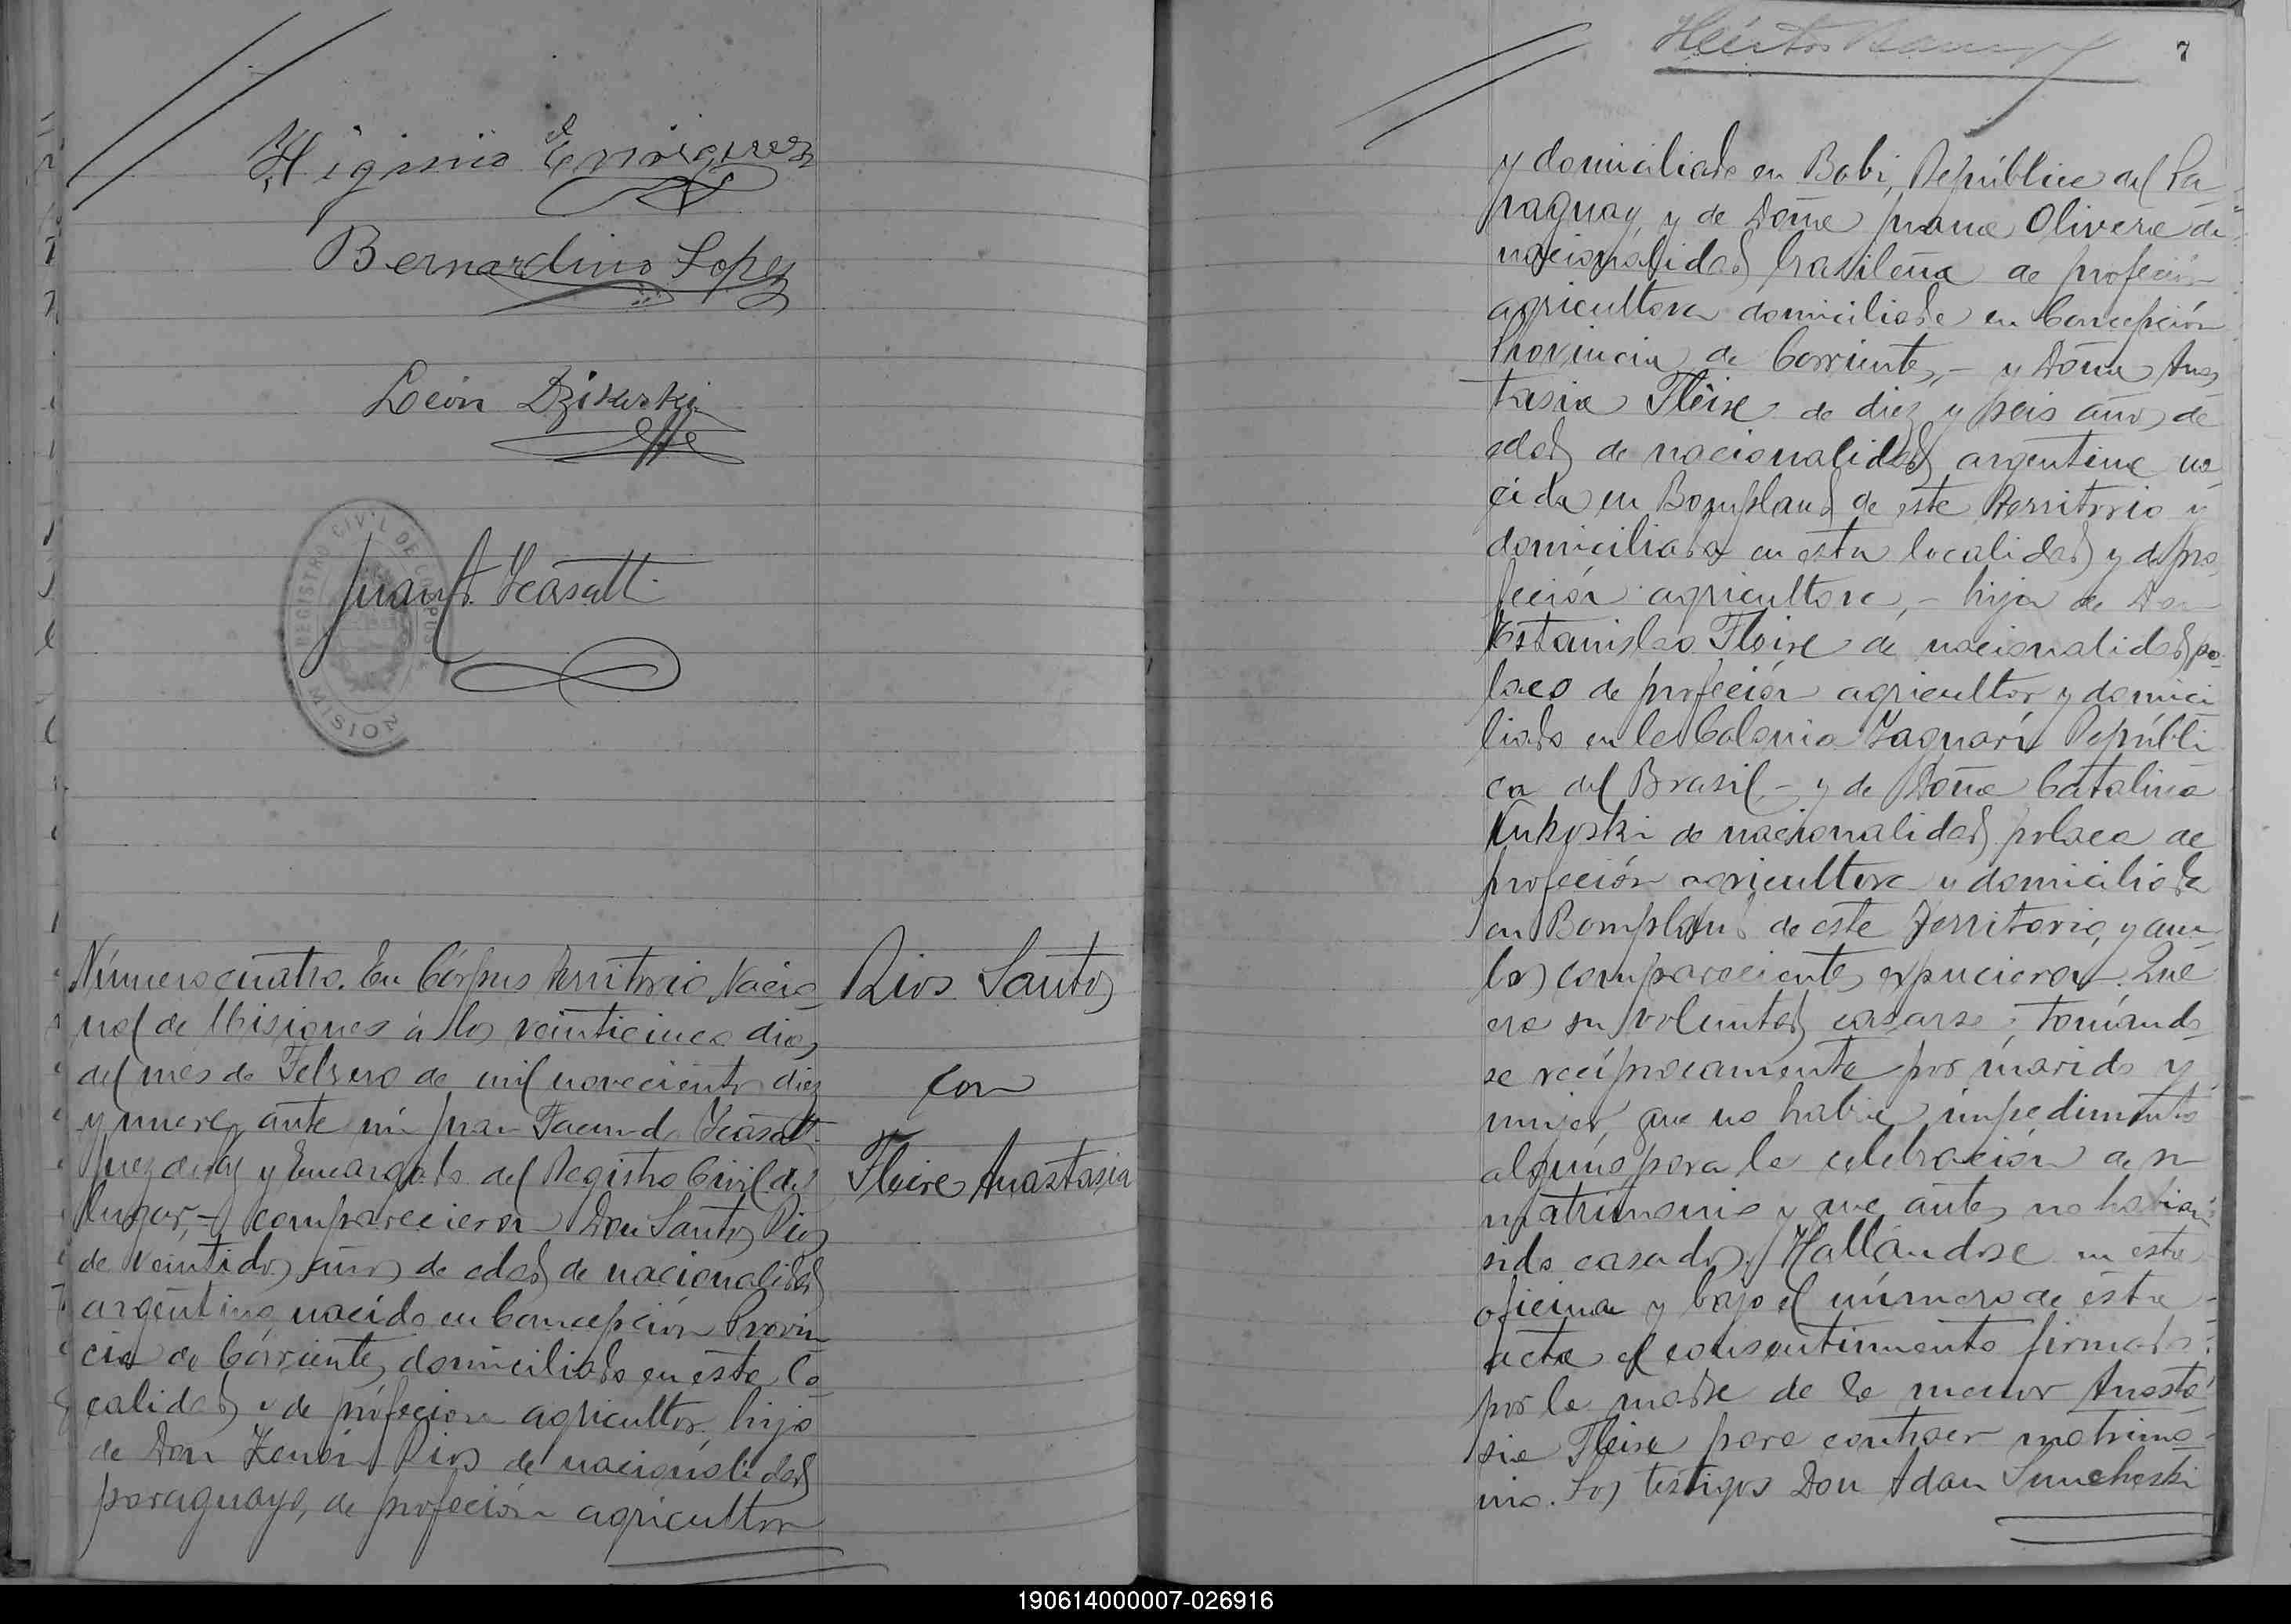 Higinio Enriquez
Bernardino Lopez
León Dzikuski
Juan F. Ycasatti
REGISTRO CIVIL DE CORPUS
MISION
Número cuatro. En Córpus territorio Nacio
nal de Misiones á los veinticinco dias
del més de Febrero de mil novecientos diez
y nueve, ante mi Juan Facundo Ycasatti
Juez de Paz y Encargado del Registro Civil del
lugar,- comparecieron Don Santos Rios
de veintidos años de edad de nacionalidad
argentino, nacido en Concepción Provin
cia de Corrientes, domiciliado en esta lo
calidad y de profecion agricultor, hijo
de Don Zenón Rios de nacionalidad
paraguayo, de profeción agricultor
Rios Santos
con
Fleire Anastasia
7
y domiciliado en Bobi, República del Pa
raguay, y de Doña Juana Olivera de
nacionalidad brasileña de profeción
agricultora domiciliada en Concepción
Provincia de Corrientes,- y Doña Anas
tasia Fleire de diez y seis años de
edad de nacionalidad argentina na
cida en Bompland de este territorio y
domiciliada en esta localidad y de pro
feción agricultora,- hija de Don
Estanislao Fleire de nacionalidad po
laco de profeción agricultor y domici
liado en la Colonia Yaguarí Repúbli
ca del Brasil,- y de Doña Catalina
de nacionalidad polaca de
profeción agricultora y domiciliada
en Bompland de este Territorio, y am
los comparecientes expucieron: Que
era su voluntad casarse, tomándo
se recíprocamente por marido y
mujer, que no había impedimento
alguno para la celebración de su
matrimonio y que antes no habian
sido casados. Hallándose en esta
oficina y bajo el número de esta
acta el consentimiento firmado
por la madre de la menor Anasta
sia Fleire para contraer matrimo
nio. Los testigos Don Adan Suncheski
190614000007-026916